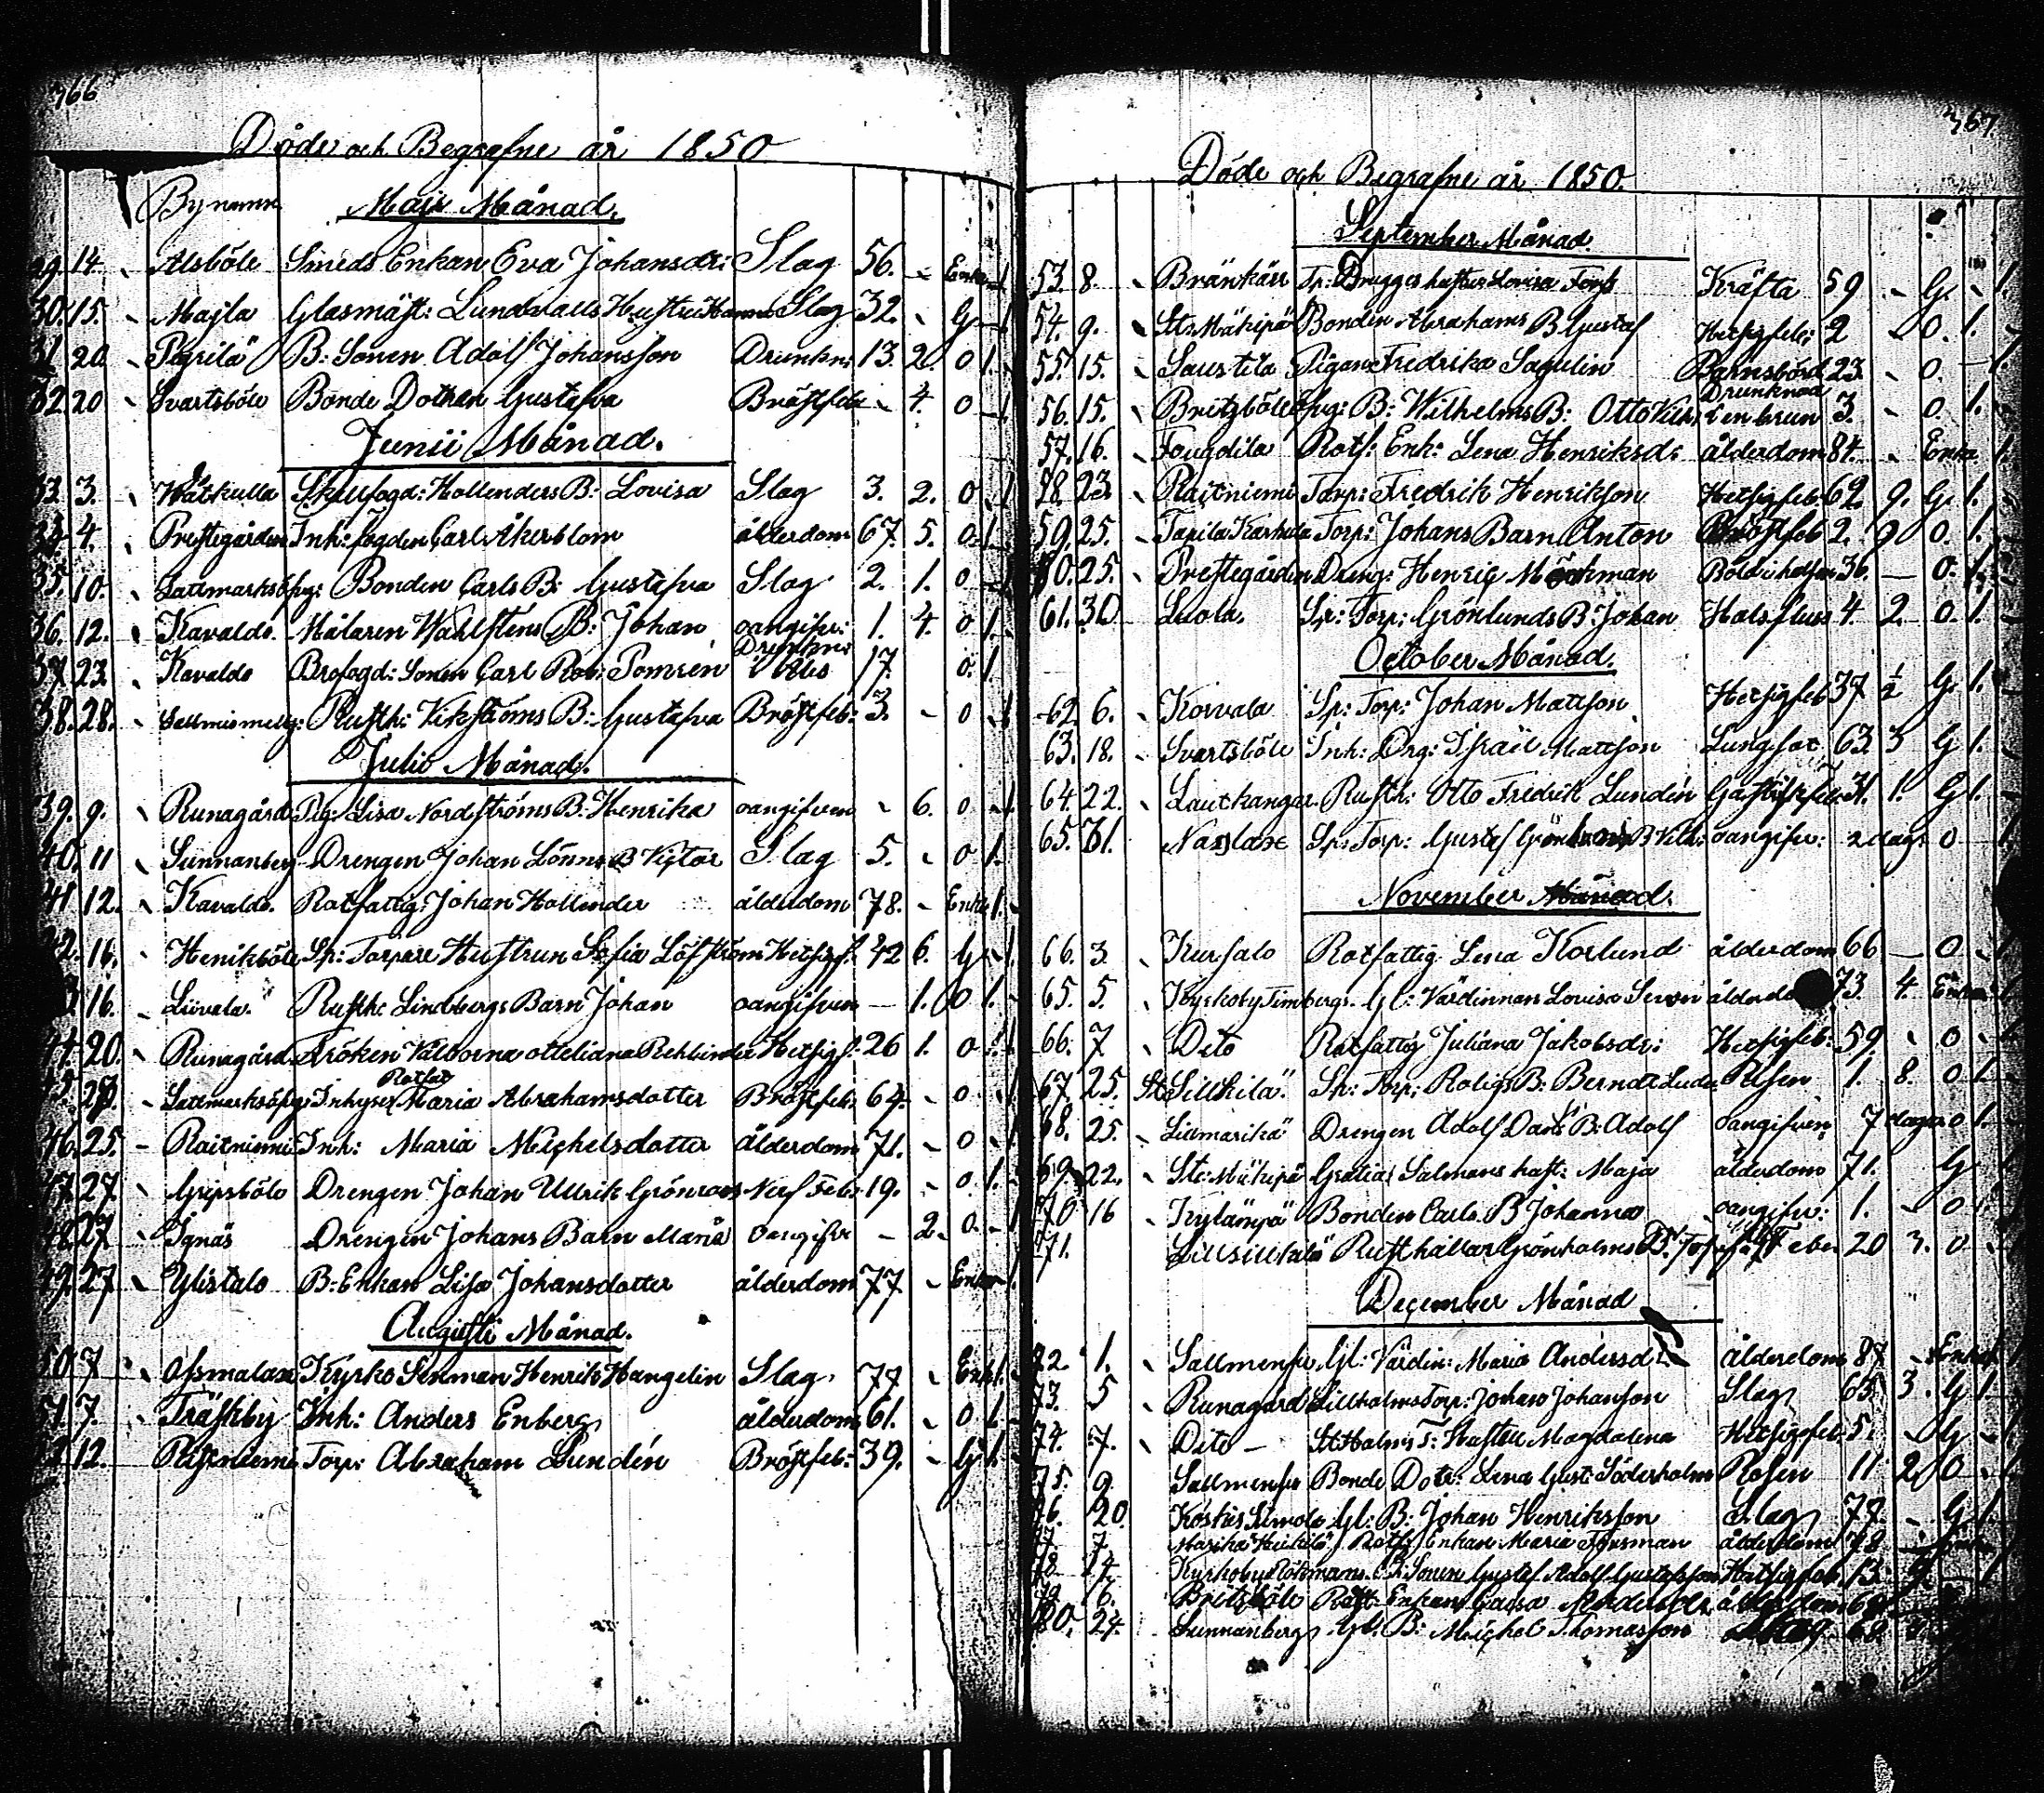 766
Döde och Begrafne år 1850
Bynamn Maji Månad.
29. 14. Alsböle Smeds Enkan Eva Johansdr: Slag 56. - Enka 1
30. 15. Majla Glasmäst: Lundvalls Hustru Hanna Slag 32. - G 1
31 20 B: Sonen Adolf Johansson Drunkn: 13. 2. 0 1.
32 20 Svartsböle Bonde Dottren Gustafva Bröstfeb - 4. 0 1
Junii Månad.
33. 3. Skallfogd: Hollenders B: Lovisa Slag 3. 2. 0 1
34 4. Prestegården Inh: fogden Carl Åkerblom ålderdom 67. 5. 0 1
35. 10. Bonden Carls B: Gustafva Slag 2. 1. 0 1
36. 12. Kavaldo. Målaren Wahlstens B: Johan oangifv: 1. 4. 0 1.
Drunkn:
37 23. Kavaldo Brofogd: Sonen Carl Rob: Tomren i Åbo 17. 0. 1
38. 28. Rusth: Vikströms B: Gustafva Bröstfeb: 3. - 0 1
Julii Månad.
39. 9. Runagård Pig: Lisa Nordströms B. Henrika oangifven - 6. 0 1
40. 11 Sunnanberg Drengen Johan Lönns B Victor Slag 5. - 0 1.
41 12. Kavaldo. Rotfattig: Johan Hollender ålderdom 78. - Enkl 1.
42. 16. Henriksböle Sp: Torpare Hustrun Sofia Löfström Hetsigf: 42 6. G 1
43 16. Livala. Rusth: Lindbergs Barn Johan oangifven - 1. 0 1.
44. 20. Runagård Fröken Otteliana Rehbinder Hetsigf: 26 1. 0 1
Rotfat
45. Inhyses Maria Abrahamsdotter Bröstfeb: 64. - 0 1
46. 25. - Raitniemi Inh: Maria Michelsdotter ålderdom 71. - 0 1
47 27. Gripsböle Drengen Johan Ullrik Grönroos Nerf Feb: 19. - 0 1.
48 27 Ignäs Drengen Johans Barn Oangifv - 2. 0. 1
49. 27 Ylistalo B: Enkan Lisa Johansdotter ålderdom 77 - Enka 1
Augusti Månad.
50 7 Osmalax Kyrko Henrik Hangelin Slag. 77 - Enkl 1.
51. 7. Träskby Inh: Anders Enberg ålderdom 61. - 0 1.
52 12. Torp: Abraham Lundén Bröstfeb: 39. - G 1.
767
Döde och Begrafne år 1850.
September Månad.
53. 8. Bränkärr Lovisa Fors Kräfta 59 - G. - 1.
54. 9. St: Mäkipä Bonden Abrahams B Gustaf Hetsigfeb: 2 - 0. 1.
55. 15. Saustila Pigan Fredrika Sagulin Barnsbörd 23. - 0. - 1.
Drunknad
56. 15. B: Wilhelms B: Otto Vilh: i en brun 3. - 0. 1.
57. 16. Fougdila Rotf: Enk: Lena Henriksd: ålderdom 84. - Enka 1.
58. 23. Raitniemi Torp: Fredrik Henrikson Hetsigfeb: 62. 9. G. 1.
59. 25. Tarila Torp: Johans Barn Anton Bröstfeb 2. 9 0. 1.
60. 25. Prestegården Dreng: Henric Mörkman Bold i halsen 36. - 0. 1.
61. 30 Luola. Sp: Torp: Grönlunds B: Johan Halsfluss 4 2. 0. 1.
October Månad.
62. 6. Korvala Sp: Torp: Johan Mattson Hetsigfeb 37 ½ G. 1.
63. 18. Svartsböle Inh: Drg: Israel Mattson Lungsot 63. 3 G 1.
64. 22. Lautkangar Rusth: Otto Fredrik Lundin 31. 1. G 1.
65. 31. Sp: Torp: Gustaf B Vilh: oangifv: 2 dagr 0 1.
November Månad.
66. 3 Kursalo Rotfattig Lena Korlund ålderdom 66 - 0 - 1
65. 5. Kyrkoby Timbergs. Gl: Värdinnan Lovisa ålderdo 73. 4. Enka 1
66. 7 Dito Rotfattig Juliana Jakobsdr: Hetsigfeb: 59. - 0 - 1.
67. 25. St Sillkila Sp: Torp: Roligs B: Berndt Ludv: Rosen 1. 8. 0 1.
68. 25. Lillmarikä Drengen Adolf B: Adolf oangifven 7 dagar 0 1.
69. 22. St: Mäkipä Salmans hust: Maja ålderdom 71. G 1
70 16 Kylänpä Bonden Carls B Johanna oangifv: 1. - 0 1.
71. Lillsillkilä Rusthållar Grönholms B: Feber 20 3. 0
December Månad
72. 1. Gl: Värdin: Maria Andersd: ålderdom 87 - Enka 1
73. 5 Runagård Lillholms Torp: Johan Johanson Slag 65. 3. G 1.
74. 7. Dito - St Holms T: Hustru Magdalena Hetsigfeb. 5. - G - 1
75. 9 Bonde Dotr: Lena Gust: Söderholm Rosen 11 2 0 - 1
76. 20. Gl: B: Johan Henriksson Slag 77. - G 1.
77 7 Rotf: Enkan Maria Forsman ålderdom 78 - Enka
78. 14. Kyrkoby Rökmans. B: Sonen Gustaf Adolf Gustafsson Hetsigfeb. 13. 9.
79 16. Enkan ålderdom 68
80. 24. Sunnanberg Gl: B: Michel Thomasson Slag 68